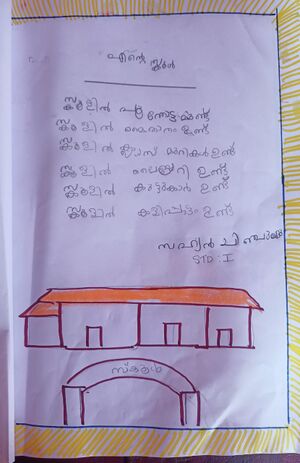 എന്റെ സ്കൂൾ
സ്കൂളിൽ പൂന്തോട്ടമുണ്ട്
സ്കൂളിൽ മൈതാനം ഉണ്ട്
സ്കൂളിൽ ക്ലാസ് മുറികൾ ഉണ്ട്
സ്കൂളിൽ ലൈബ്രറി ഉണ്ട്
സ്കൂളിൽ കൂട്ടുകാർ ഉണ്ട്
സ്കൂളിൽ കളിപ്പാട്ടം ഉണ്ട്
STD : I
സ്കൂൾ